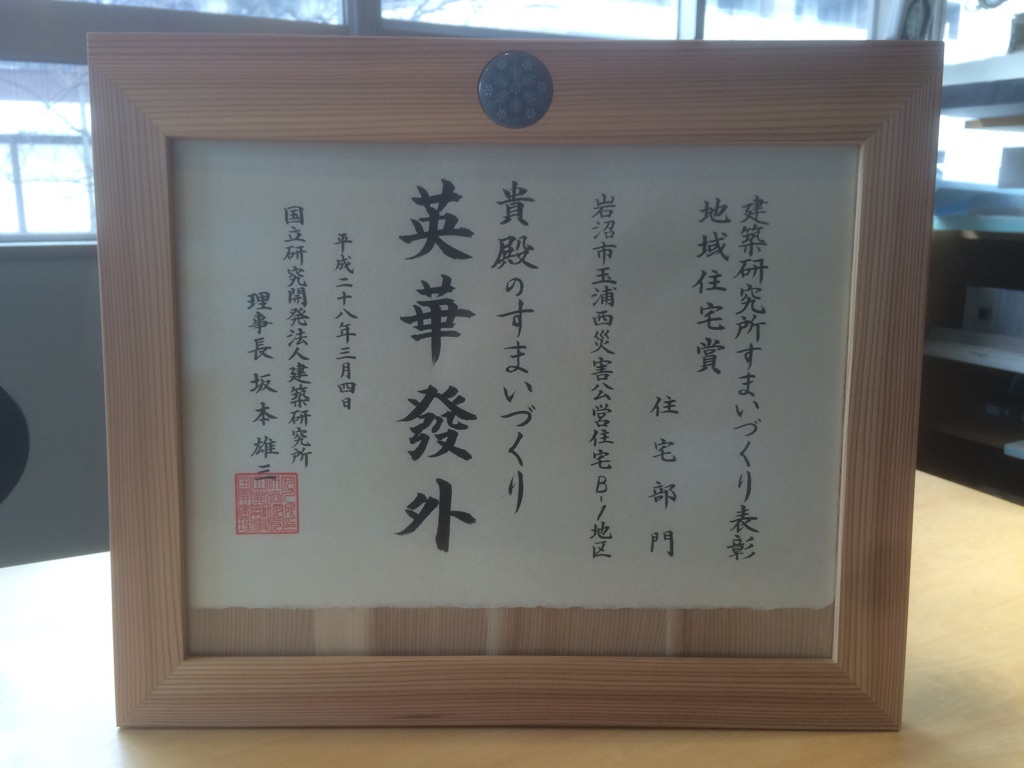 建築研究所すまいづくり表彰
地域住宅賞
住宅部門
岩沼市玉浦西災害公営住宅B-1地区
貴殿のすまいづくり
英華發外
平成二十八年三月四日
国立研究開発法人建築研究所
理事長 坂本雄三